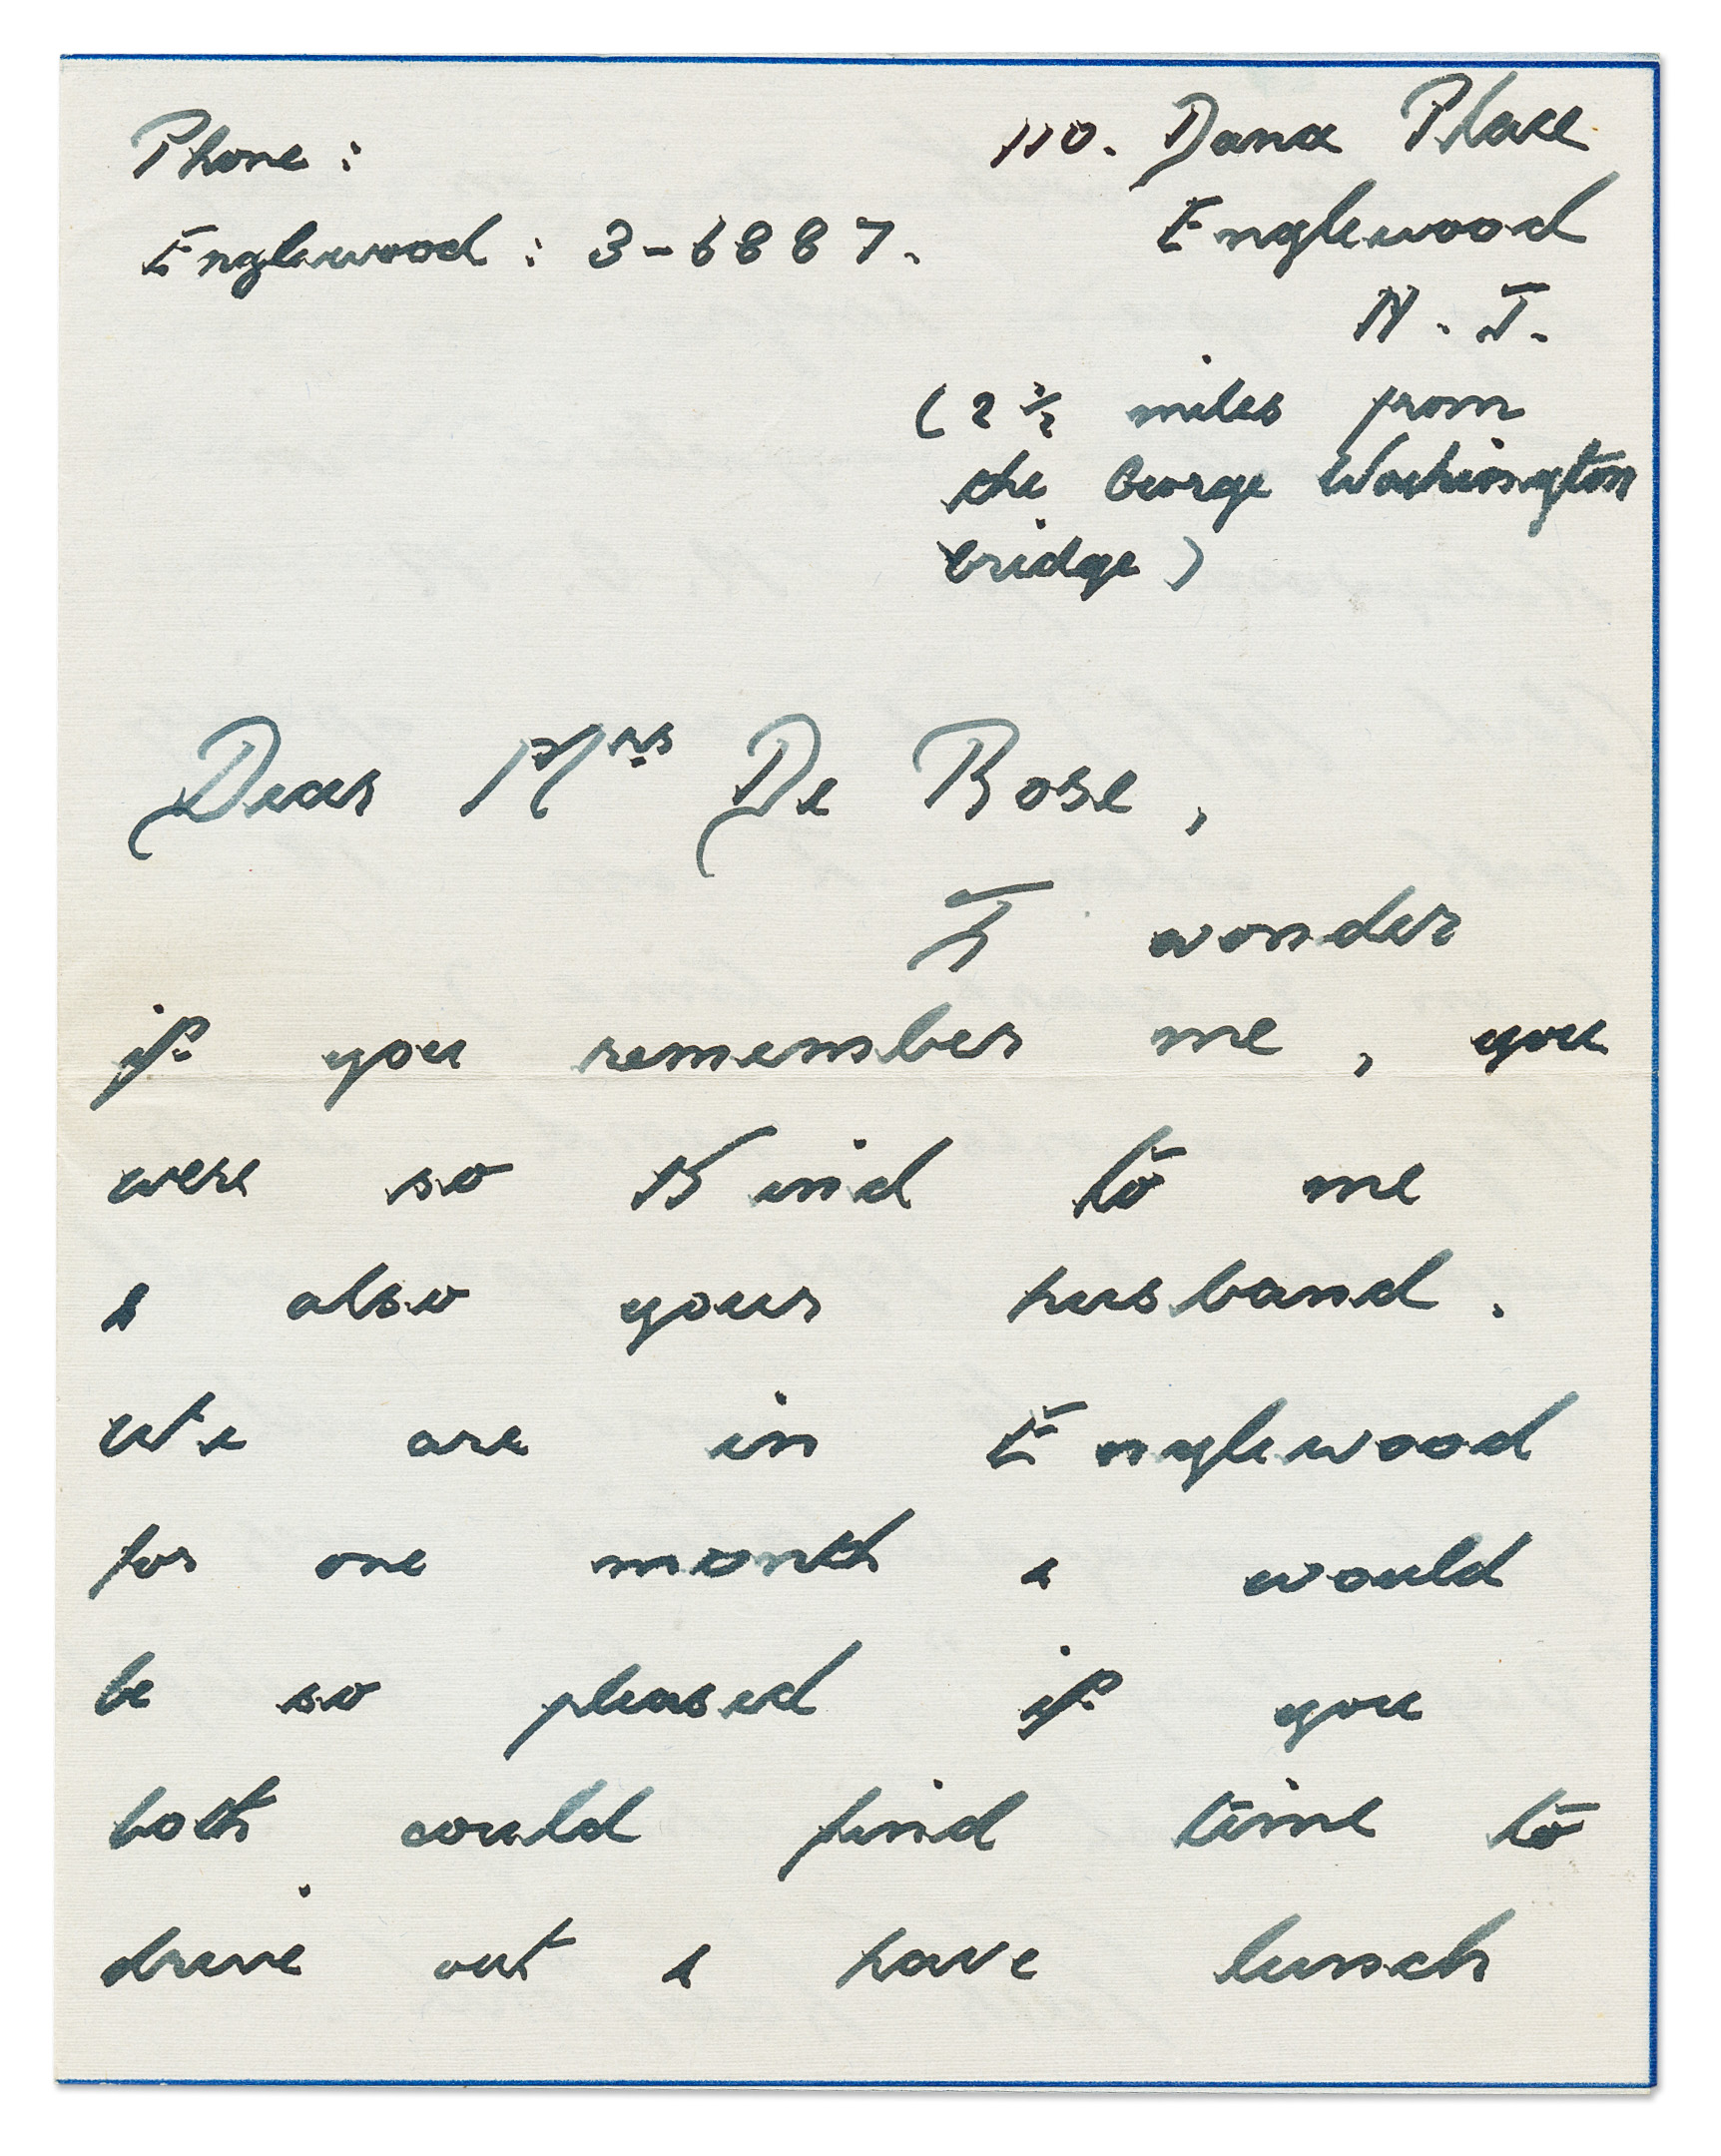 Phone:
110. Dana Place
Englewood: 3-6887.
Englewood
N. J.
(2 1/2 miles from
the George Washington
bridge)
Dear Mrs De Rose,
I wonder
if you remember me, you
were so Kind to me
& also your husband.
We are in Englewood
for one month & would
be so pleased if you
both could find time to
drive out & have lunch